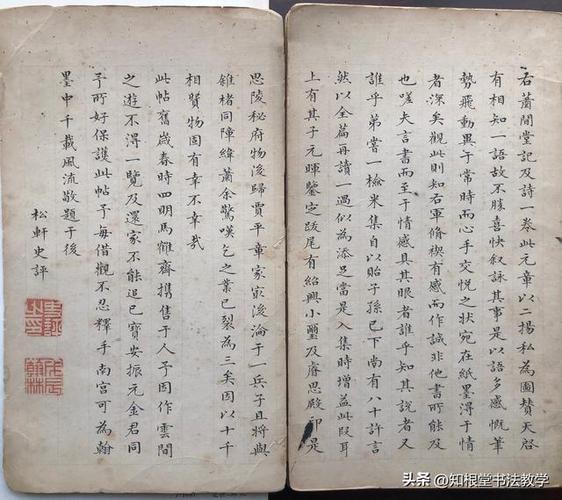 右蕭閒堂記及詩一卷此元章以二揚私為圖贊天啓
有相知一語故不勝喜快叙詠其事是以語多感慨筆
勢飛動異于常時而心手交悅之狀宛在紙墨淂于情
者深矣觀此則知右軍脩禊有感而作誠非他書所能及
也嗟夫言書而至于情感具其眼者誰乎知其說者又
誰乎弟嘗一檢米集自以貽子孫已下尚有八十許言
然以全篇再讀一過似為添足當是入集時增益此段耳
上有其子元暉鑒定跋尾有紹興小璽及睿思殿印是
思陵秘府物後歸賈平章家㝡後淪于一兵子且將與
雜楮同陣緯蕭余驚嘆乞之業已裂為三矣因以十千
相貿物固有幸不幸哉
此帖舊歲春時四明馬齋携售于人予因作雲間
之遊不得一覽及還家不能追已寶安振元金君同
予所好保護此帖予每借觀不忍釋手南宮可為翰
墨中千載風流敬題于後
松軒史評
头条 @知根堂书法教学